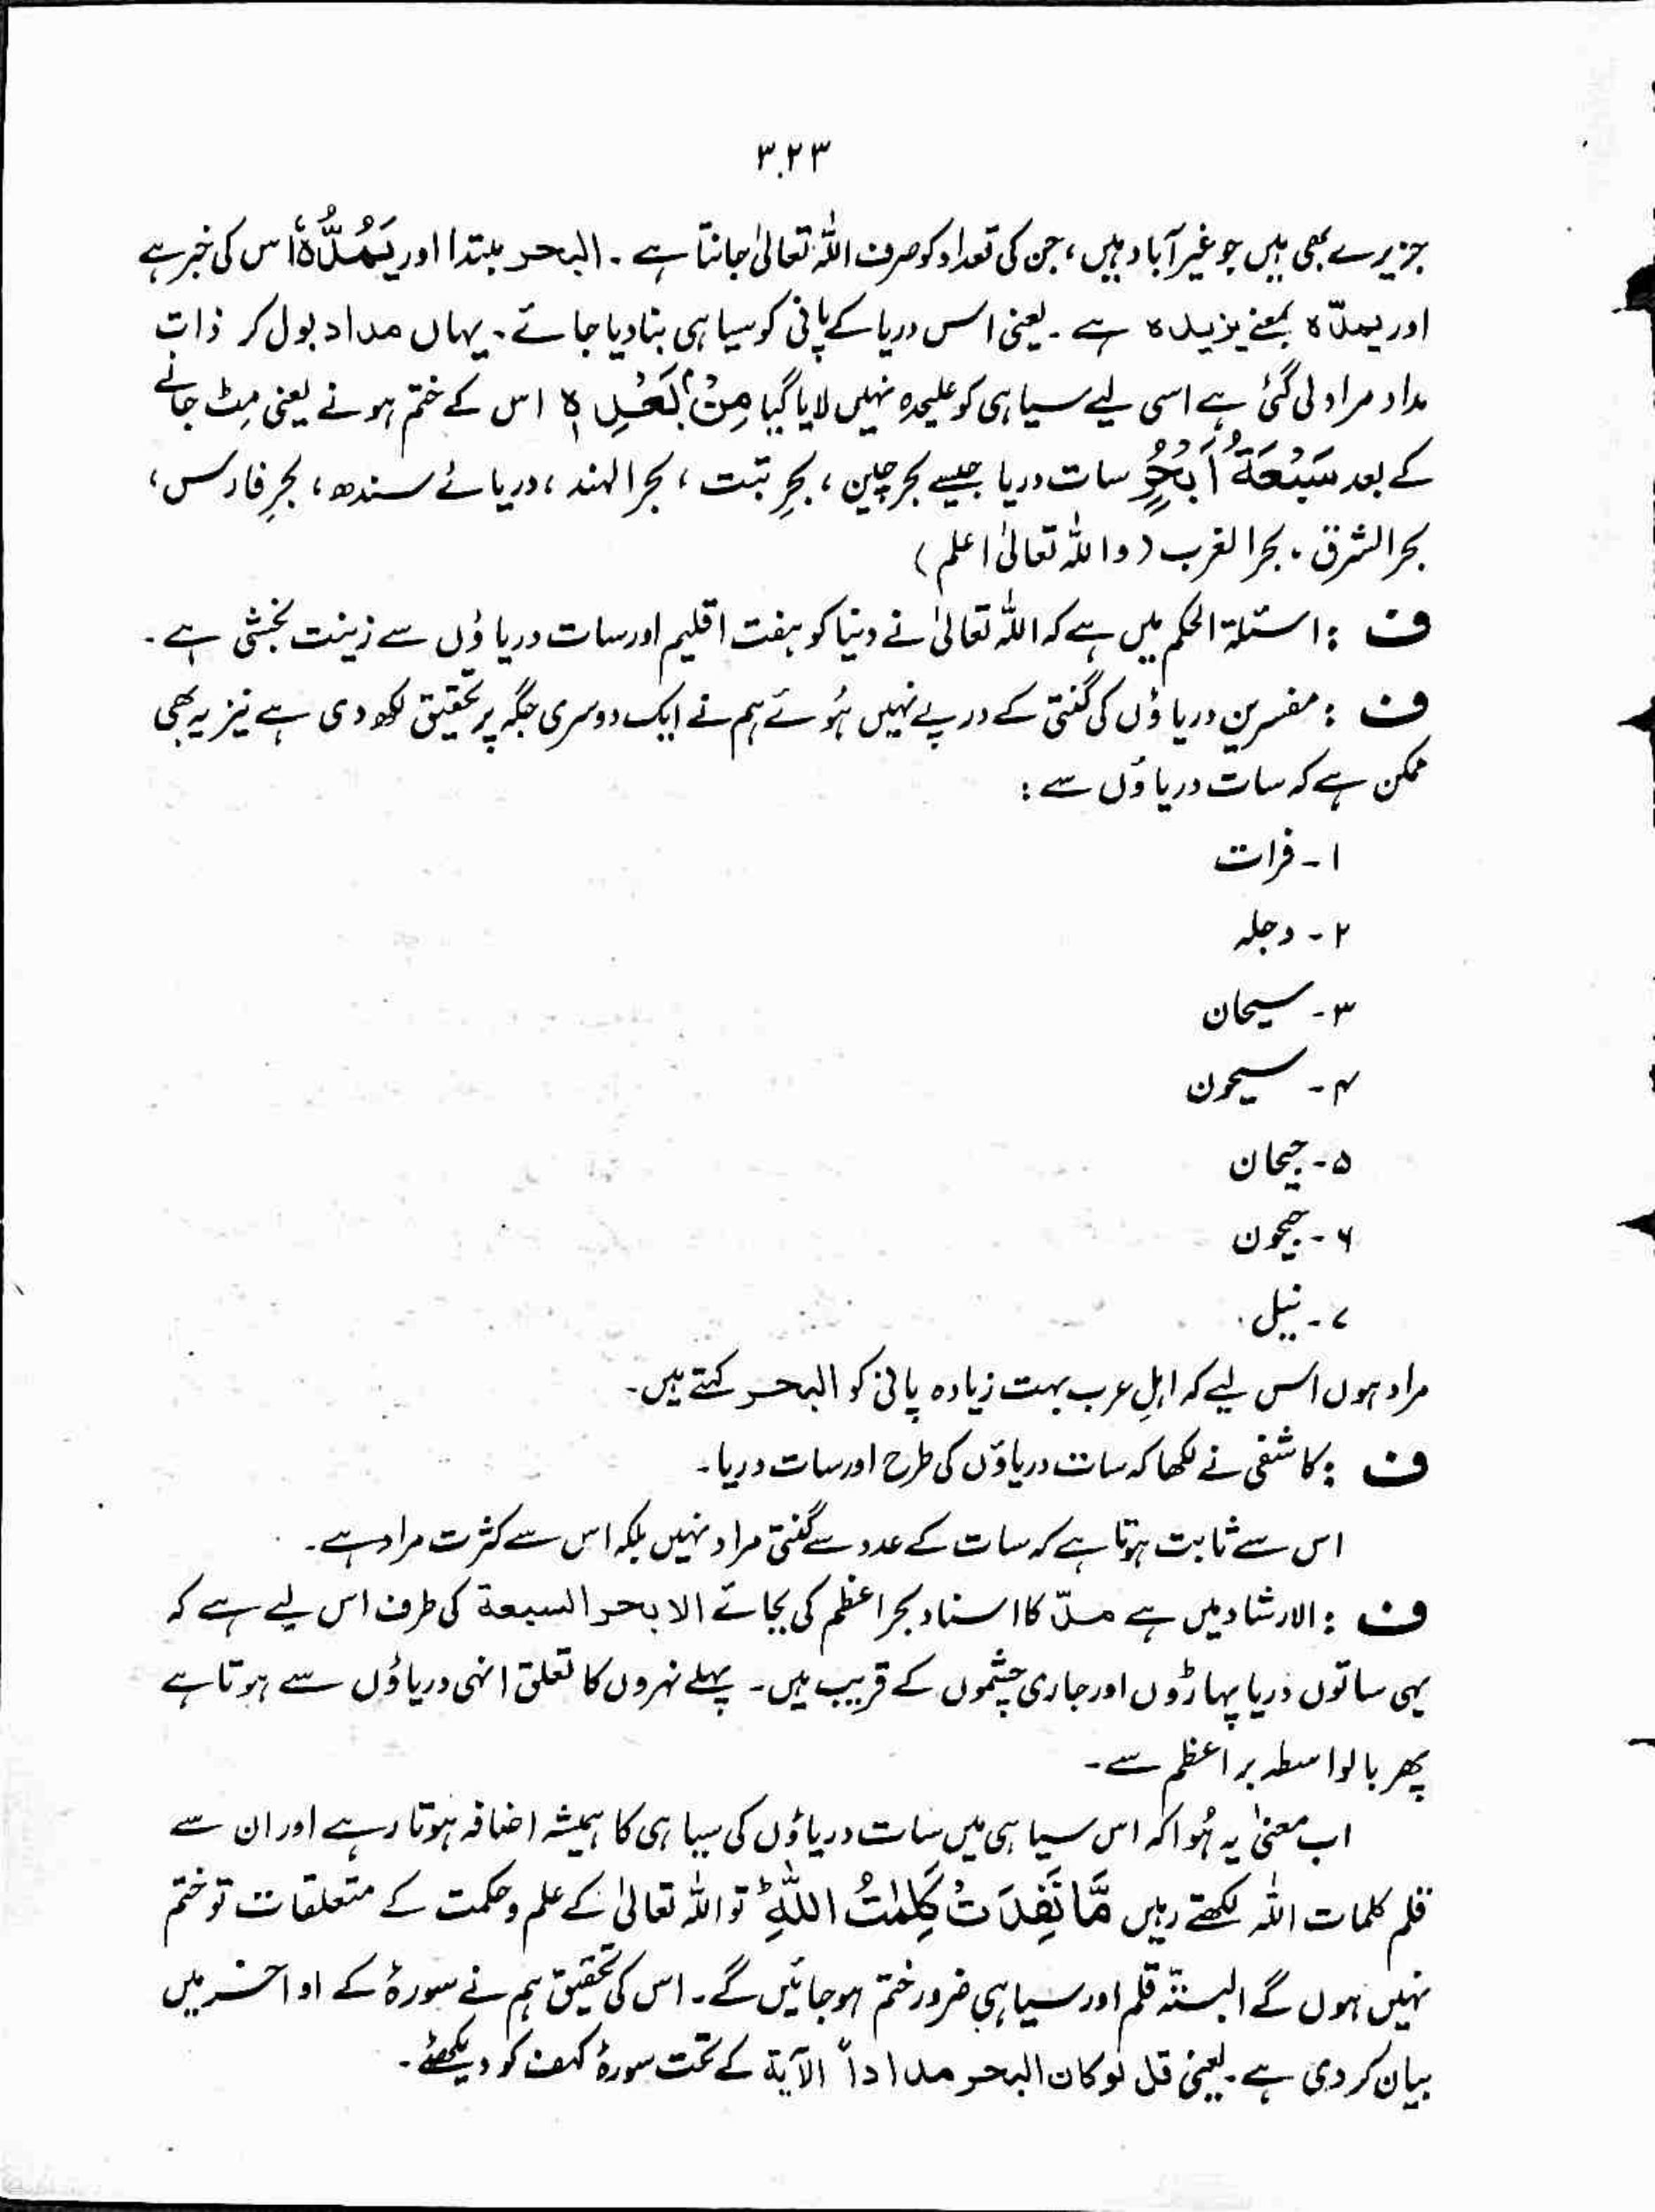 ۳۲۳
جزیرے بھی ہیں جو غیر آباد ہیں، جن کی تعداد کو صرف اللہ تعالیٰ جانتا ہے ۔ البحر مبتدا اور یَمُدُّہٗ اس کی خبر ہے
اور یمدّہ بمعنے یزیدہ ہے ۔ یعنی اس دریا کے پانی کو سیاہی بنا دیا جائے ۔ یہاں مداد بول کر ذات
مداد مراد لی گئی ہے اسی لیے سیاہی کو علیحدہ نہیں لایا گیا مِنْۢ بَعْدِہٖ اس کے ختم ہونے یعنی مِٹ جانے
کے بعد سَبْعَۃُ اَبْحُرٍ سات دریا جیسے بحر چین ، بحرِ تبّت ، بحر الہند ، دریائے سندھ ، بحرِ فارس ،
بحر الشرق ، بحر الغرب (واللہ تعالیٰ اعلم)
ف : اسئلۃ الحکم میں ہے کہ اللہ تعالیٰ نے دنیا کو ہفت اقلیم اور سات دریاؤں سے زینت بخشی ہے ۔
ف : مفسرین دریاؤں کی گنتی کے درپے نہیں ہُوئے ہم نے ایک دوسری جگہ پر تحقیق لکھ دی ہے نیز یہ بھی
ممکن ہے کہ سات دریاؤں سے :
۱ ۔ فرات
۲ ۔ دجلہ
۳ ۔ سیحان
۴ ۔ سیحون
۵ ۔ جیحان
۶ ۔ جیحون
۷ ۔ نیل
مراد ہوں اس لیے کہ اہلِ عرب بہت زیادہ پانی کو البحر کہتے ہیں ۔
ف : کاشفی نے لکھا کہ سات دریاؤں کی طرح اور سات دریا ۔
اس سے ثابت ہوتا ہے کہ سات کے عدد سے گنتی مراد نہیں بلکہ اس سے کثرت مراد ہے ۔
ف : الارشاد میں ہے مدّ کا اسناد بحرِ اعظم کی بجائے الابحر السبعۃ کی طرف اس لیے ہے کہ
یہی ساتوں دریا پہاڑوں اور جاری چشموں کے قریب ہیں ۔ پہلے نہروں کا تعلق انہی دریاؤں سے ہوتا ہے
پھر بالواسطہ بر اعظم سے ۔
اب معنیٰ یہ ہُوا کہ اس سیاہی میں سات دریاؤں کی سیاہی کا ہمیشہ اضافہ ہوتا رہے اور ان سے
قلم کلمات اللہ لکھتے رہیں مَّا نَفِدَتْ کَلِمٰتُ اللّٰہِ ؕ تو اللہ تعالیٰ کے علم و حکمت کے متعلقات تو ختم
نہیں ہوں گے البتہ قلم اور سیاہی ضرور ختم ہو جائیں گے ۔ اس کی تحقیق ہم نے سورۂ کے اواخر میں
بیان کر دی ہے ۔ یعنی قل لوکان البحر مداداً الآیۃ کے تحت سورۂ کہف کو دیکھئے ۔